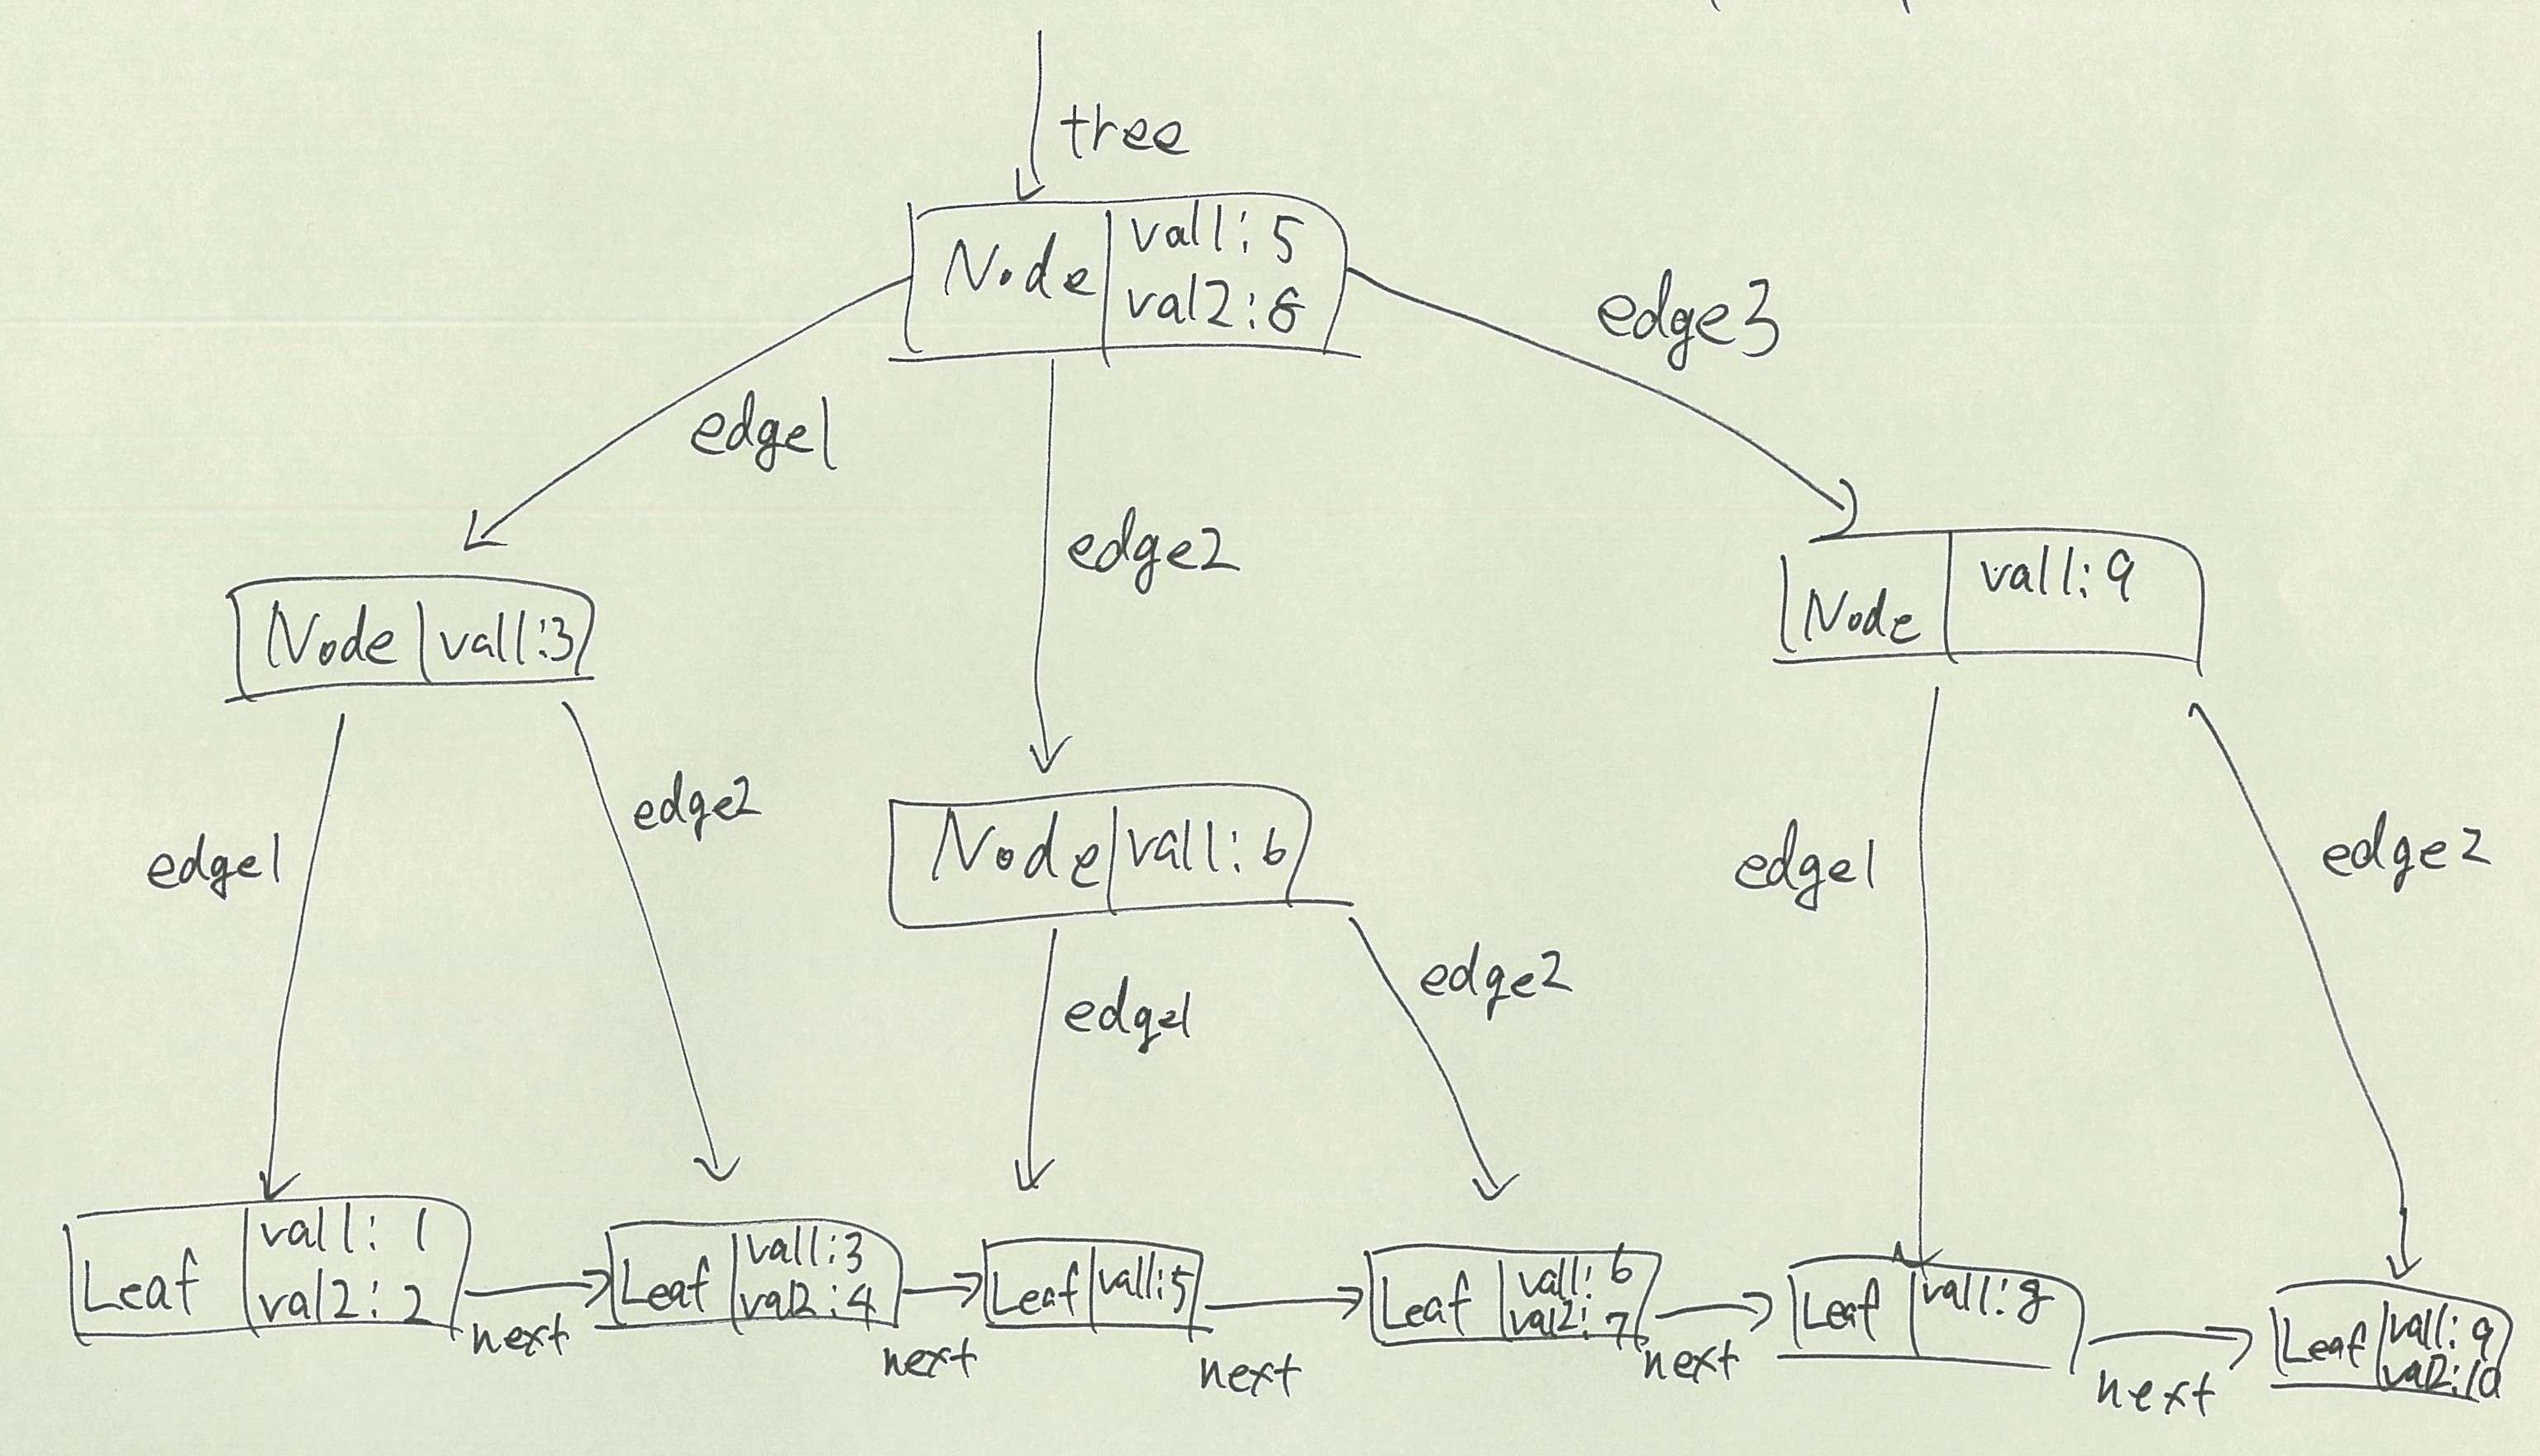 tree
Node
val1: 5
val2: 8
edge1
edge2
edge3
Node
val1:3
Node
val1: 9
edge1
edge2
Node
val1: 6
edge1
edge2
edge1
edge2
Leaf
val1: 1
val2: 2
next
Leaf
val1:3
val2:4
next
Leaf
val1:5
next
Leaf
val1: 6
val2: 7
next
Leaf
val1: 8
next
Leaf
val1: 9
val2:10